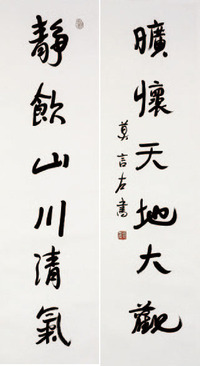 曠懷天地大觀
靜飲山川清氣
莫言左書